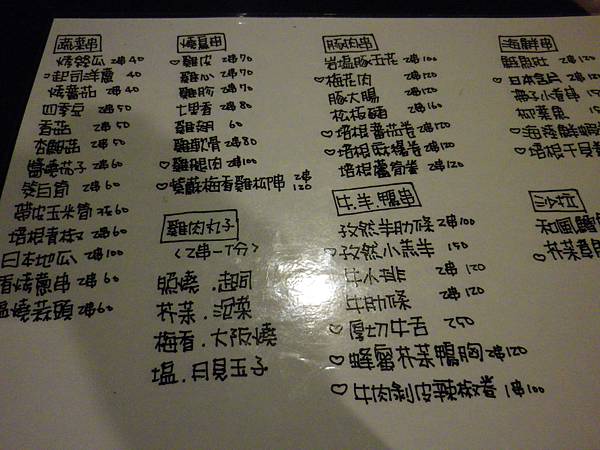 蔬菜串
烤絲瓜 2串40
♡起司洋蔥 40
烤蕃茄 2串40
四季豆 2串50
香菇 2串50
杏鮑菇 2串50
醬燒茄子 2串60
筊白筍 2串60
帶皮玉米筍 3支60
培根青椒 2串60
日本地瓜 2串100
香烤蔥串 2串60
塩燒蒜頭 2串60
燒鳥串
♡雞皮 2串70
雞心 2串70
雞胗 2串70
七里香 2串80
雞翅 60
雞軟骨 2串80
♡雞腿肉 2串100
♡紫蘇梅香雞柳串 2串120
雞肉丸子
〈2串一份〉
照燒.起司
芥茉.泡菜
梅香.大阪燒
塩.月見玉子
豚肉串
岩塩豚五花 2串100
♡梅花肉 2串120
豚大腸 2串120
松板豬 2串160
♡培根蕃茄卷 2串120
♡培根麻糬卷 2串120
培根蘆筍卷 2串120
牛.羊.鴨串
孜然羊肋條 2串100
♡孜然小羔羊 150
牛小排 2串120
牛肋條 2串120
♡厚切牛舌 250
♡蜂蜜芥茉鴨胸 2串120
♡牛肉剝皮辣椒卷 1串100
海鮮串
鮭魚肚 2串
♡日本
帶子小卷串
柳葉魚
♡海苔鮮蝦
♡培根干貝
沙拉
和風
芥茉